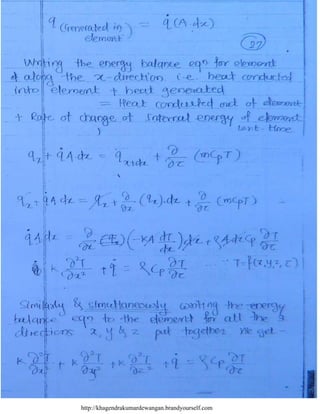 q (Generated in element) = q̇ (A.dx)
27
Writing the energy balance eqn for element
along the x-direction i.e. heat conducted
into element + heat generated
= Heat conducted out of element
+ Rate of change of Internal energy of element
w.r.t. time
qx + q̇ A dx = qx+dx + ∂/∂τ (mCpT)
qx + q̇ A dx = qx + ∂/∂x (qx).dx + ∂/∂τ (mCpT)
q̇ A dx = ∂/∂x (-KA dT/dx) dx + ρ A dx Cp ∂T/∂τ
K ∂²T/∂x² + q̇ = ρ Cp ∂T/∂τ ∵ T = f(x,y,z,τ)
Similarly & simultaneously writing the energy
balance eqn to the element for all the 3
directions x, y & z put together we get -
K ∂²T/∂x² + K ∂²T/∂y² + K ∂²T/∂z² + q̇ = ρ Cp ∂T/∂τ
http://khagendrakumardewangan.brandyourself.com